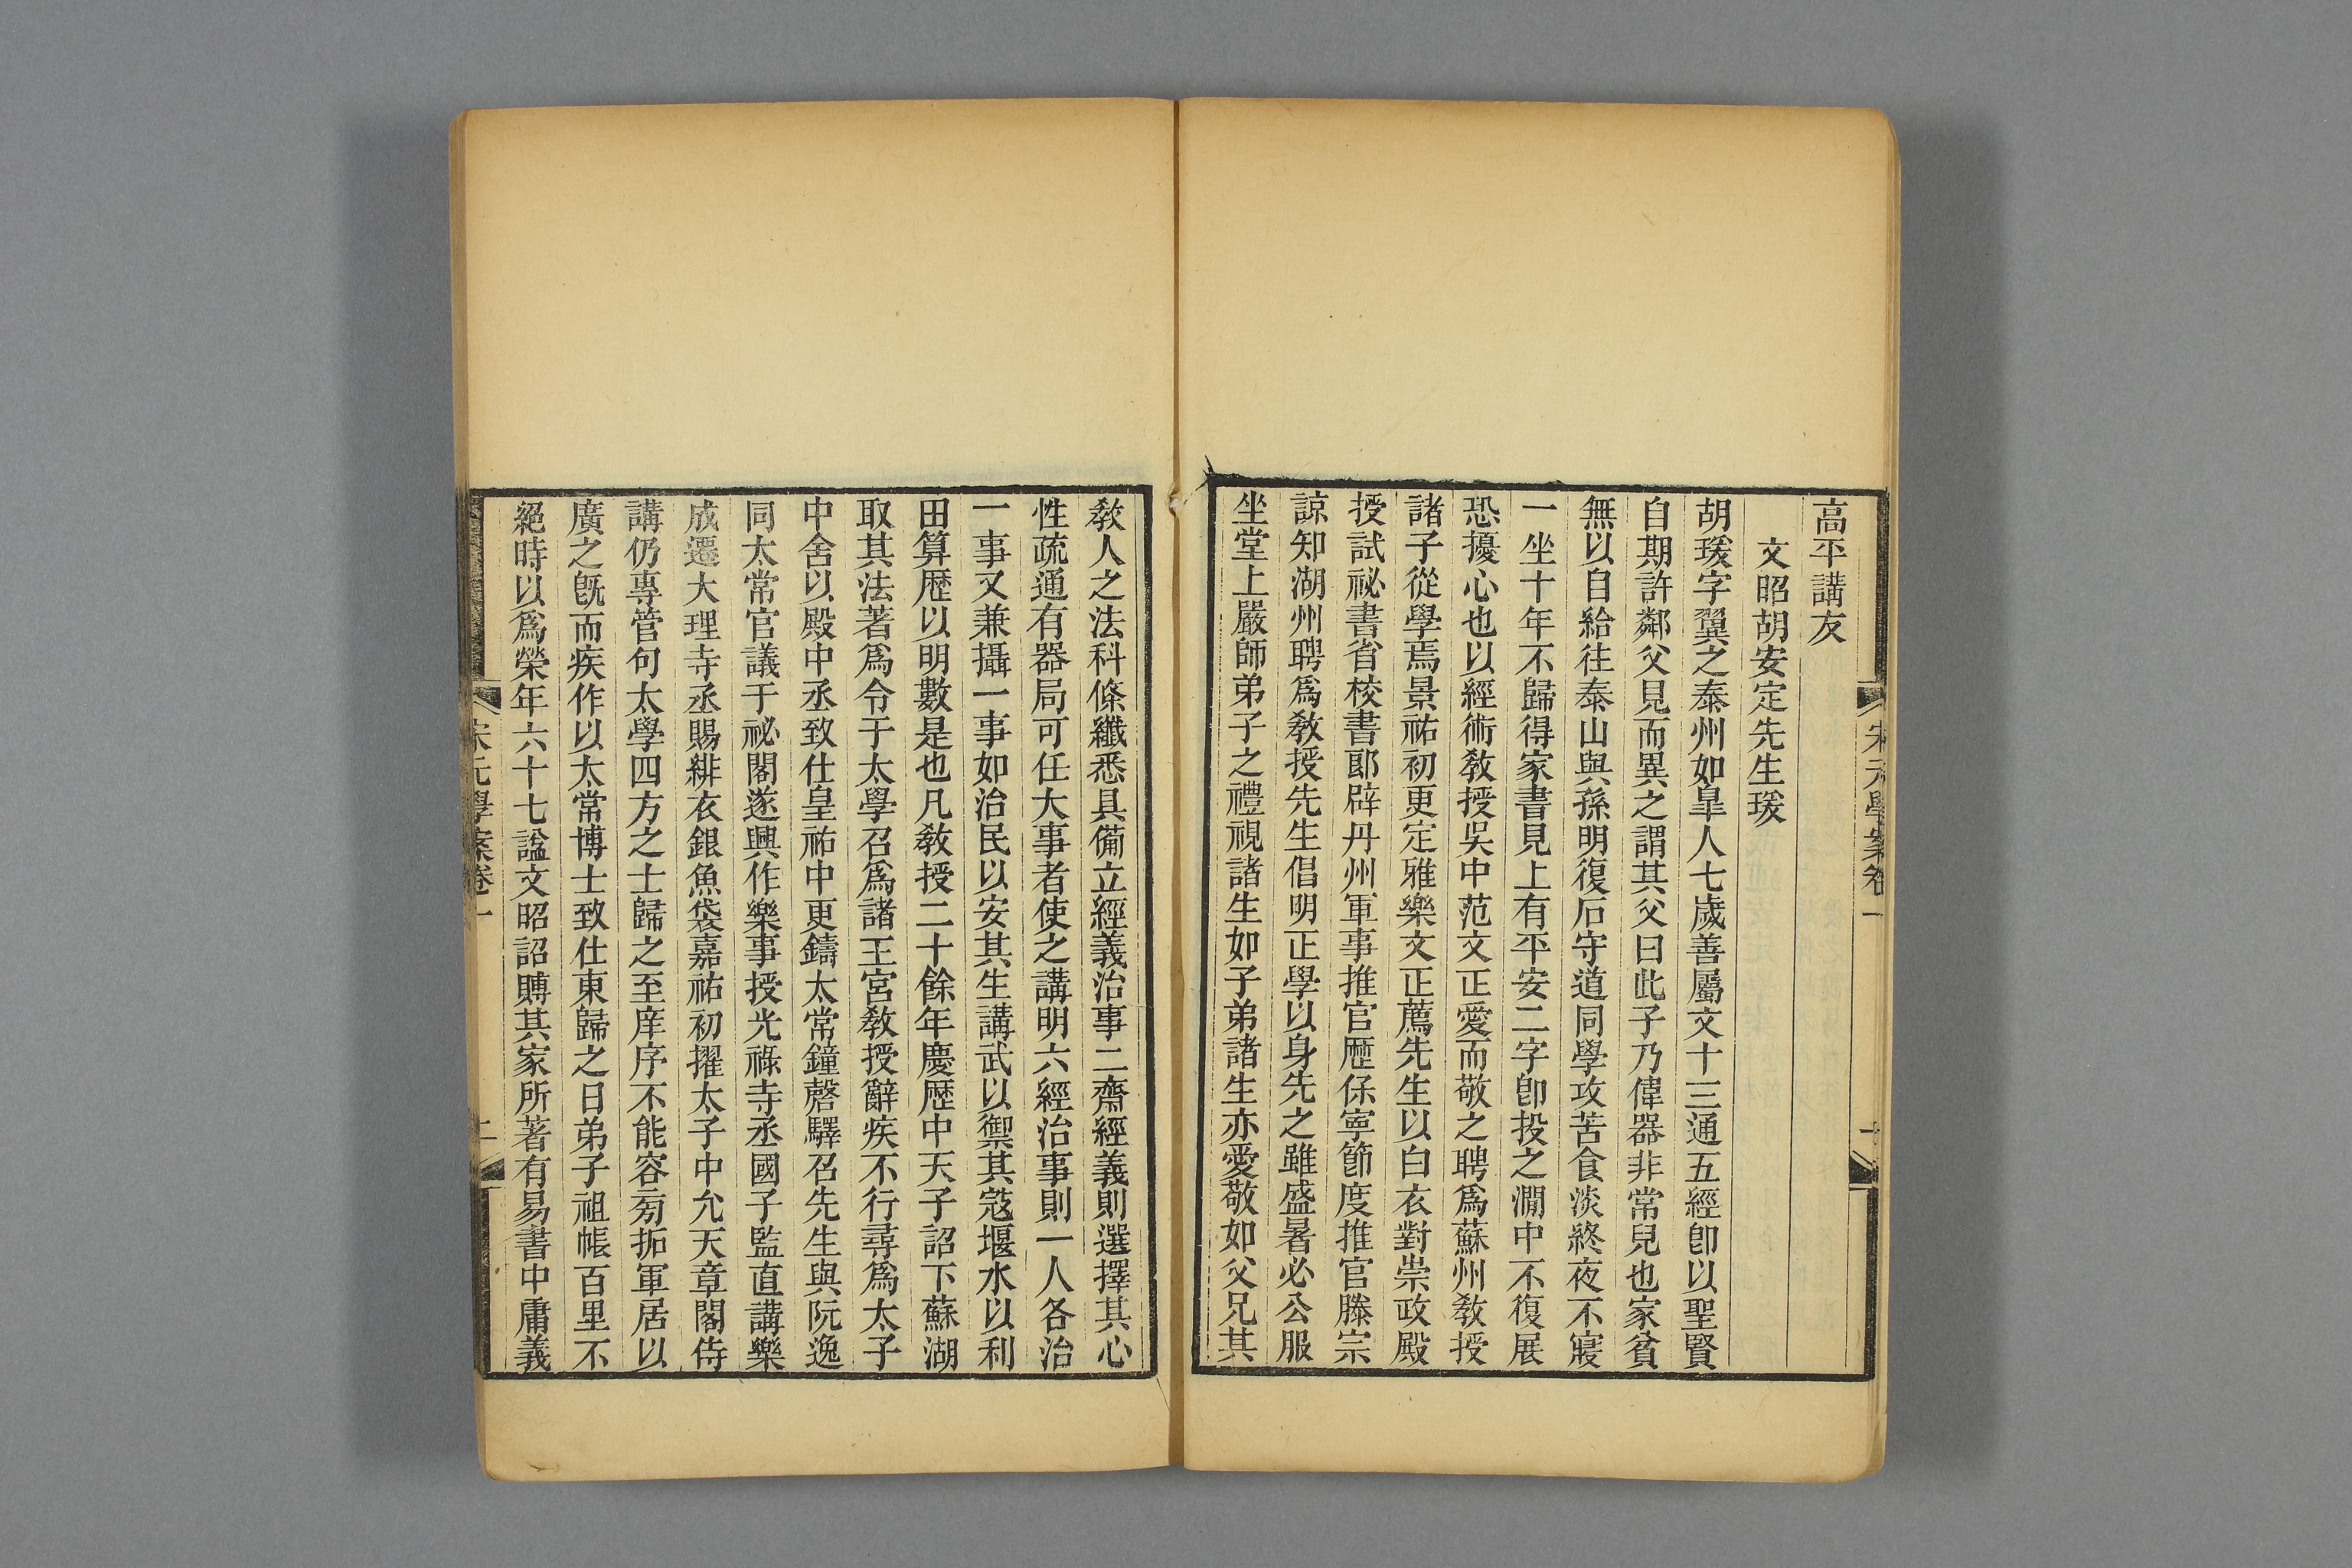 宋元學案卷一
高平講友
文昭胡安定先生瑗
胡瑗字翼之泰州如臯人七歲善屬文十三通五經卽以聖賢
自期許鄰父見而異之謂其父曰此子乃偉器非常兒也家貧
無以自給往泰山與孫明復石守道同學攻苦食淡終夜不寢
一坐十年不歸得家書見上有平安二字卽投之澗中不復展
恐擾心也以經術敎授吳中范文正愛而敬之聘爲蘇州敎授
諸子從學焉景祐初更定雅樂文正薦先生以白衣對崇政殿
授試祕書省校書郎辟丹州軍事推官歷保寧節度推官滕宗
諒知湖州聘爲敎授先生倡明正學以身先之雖盛暑必公服
坐堂上嚴師弟子之禮視諸生如子弟諸生亦愛敬如父兄其
敎人之法科條纖悉具備立經義治事二齋經義則選擇其心
性疏通有器局可任大事者使之講明六經治事則一人各治
一事又兼攝一事如治民以安其生講武以禦其寇堰水以利
田算歷以明數是也凡敎授二十餘年慶歷中天子詔下蘇湖
取其法著爲令于太學召爲諸王宮敎授辭疾不行尋爲太子
中舍以殿中丞致仕皇祐中更鑄太常鐘磬驛召先生與阮逸
同太常官議于祕閣遂興作樂事授光祿寺丞國子監直講樂
成遷大理寺丞賜緋衣銀魚袋嘉祐初擢太子中允天章閣侍
講仍專管句太學四方之士歸之至庠序不能容旁拓軍居以
廣之旣而疾作以太常博士致仕東歸之日弟子祖帳百里不
絕時以爲榮年六十七諡文昭詔賻其家所著有易書中庸義
宋元學案卷一
二